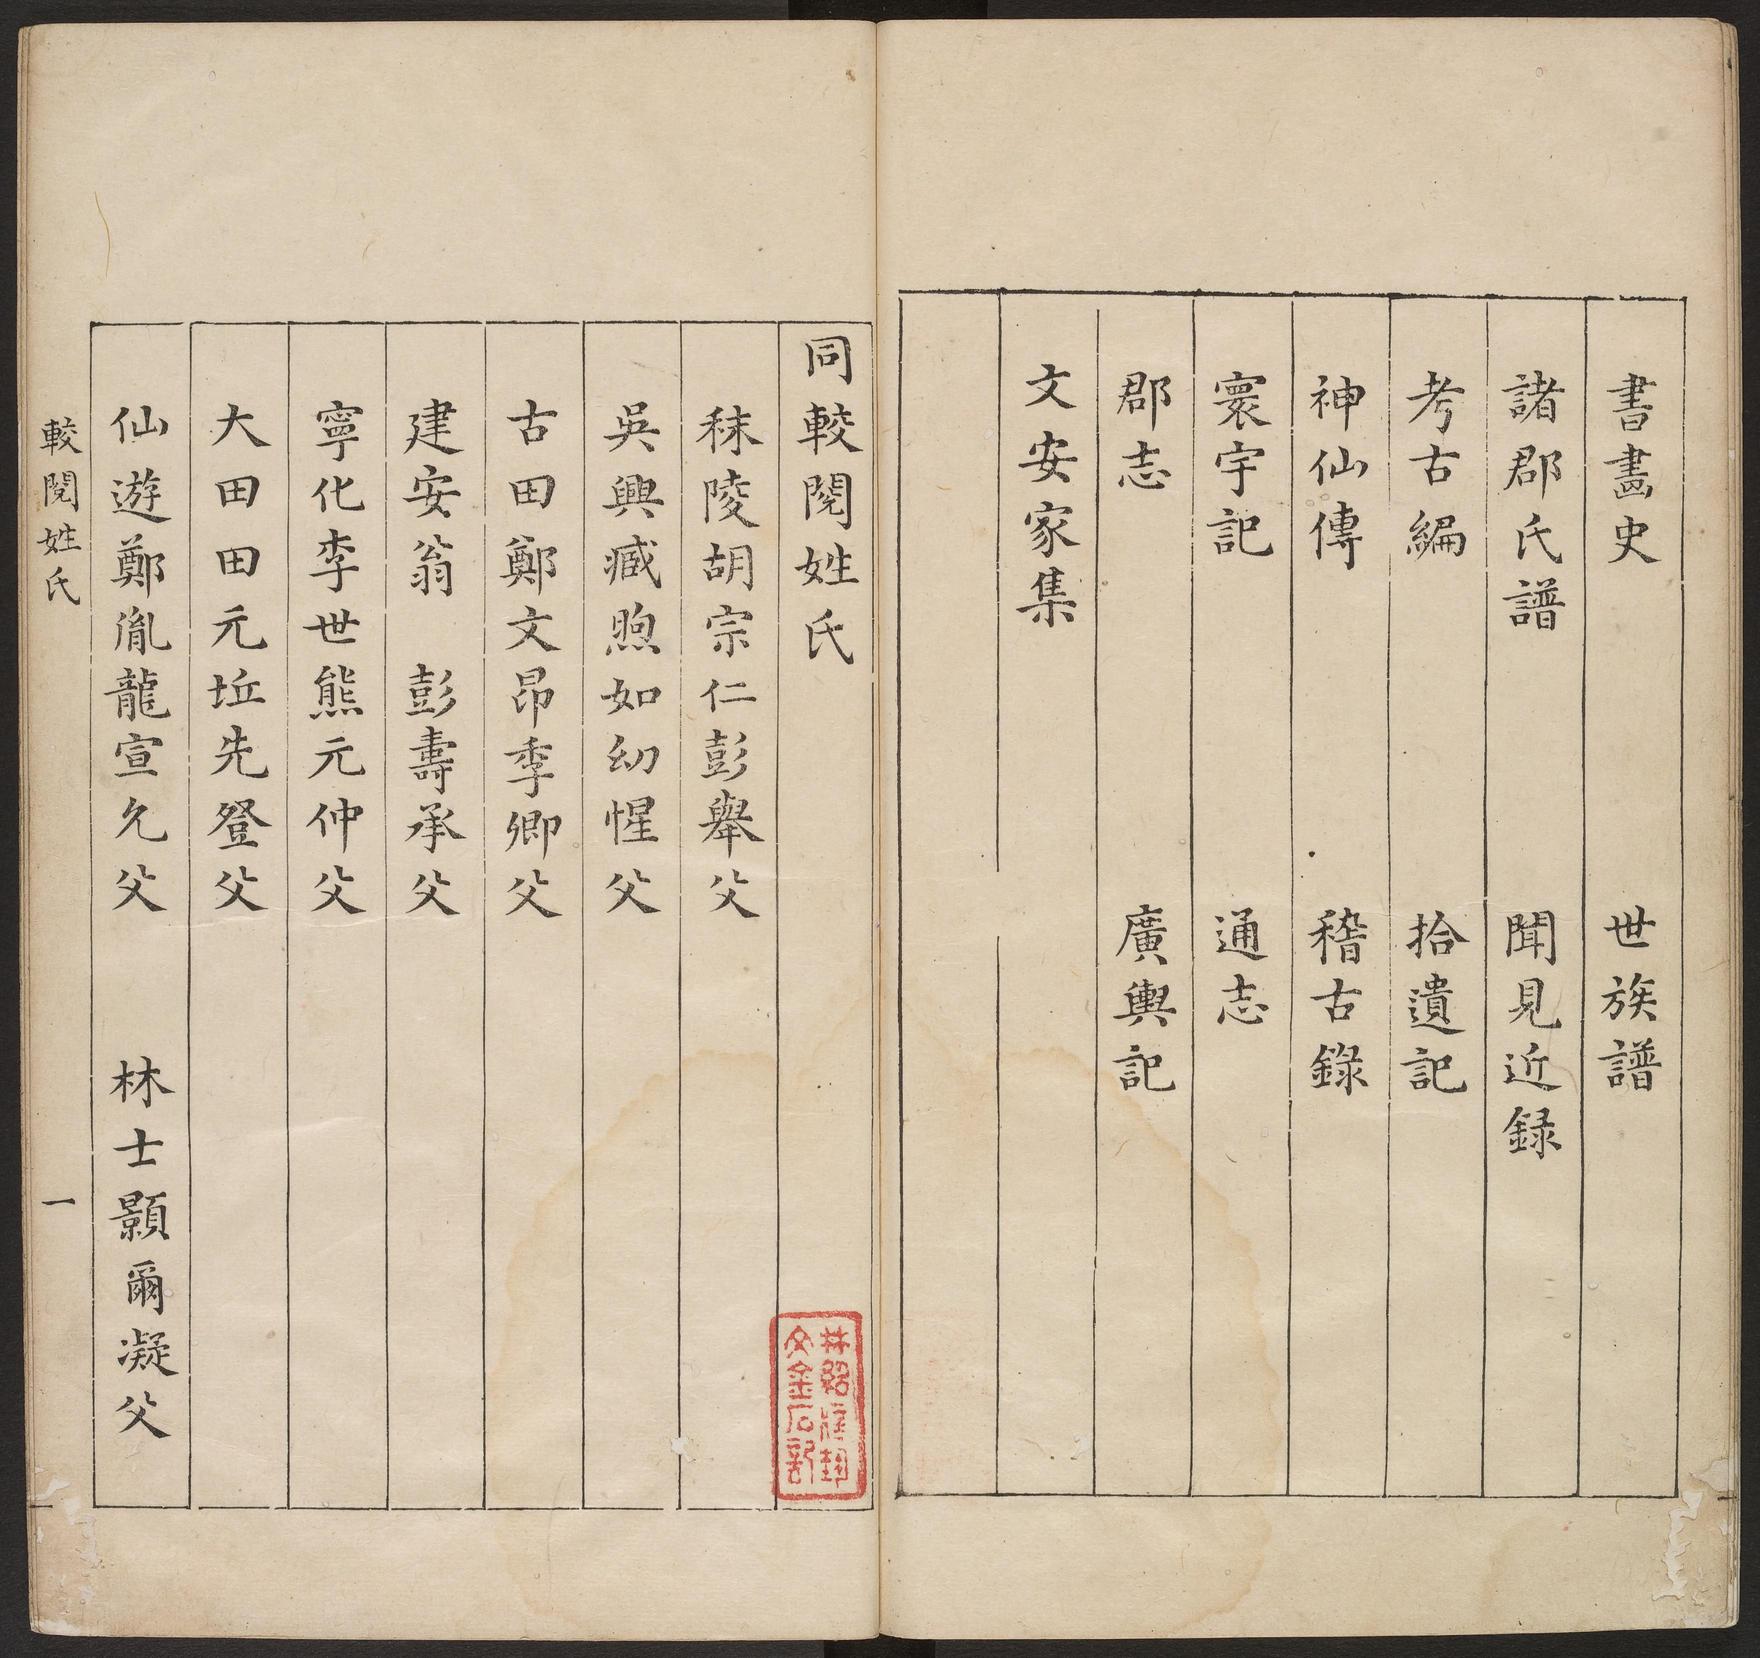 書畫史　世族譜
諸郡氏譜　聞見近録
考古編　拾遺記
神仙傳　稽古錄
寰宇記　通志
郡志　廣輿記
文安家集
同較閱姓氏
秣陵胡宗仁彭舉父
吳興臧煦如幼惺父
古田鄭文昂季卿父
建安翁　彭壽承父
寧化李世熊元仲父
大田田元坵先登父
仙遊鄭胤龍宣允父　林士顥爾凝父
較閱姓氏　一